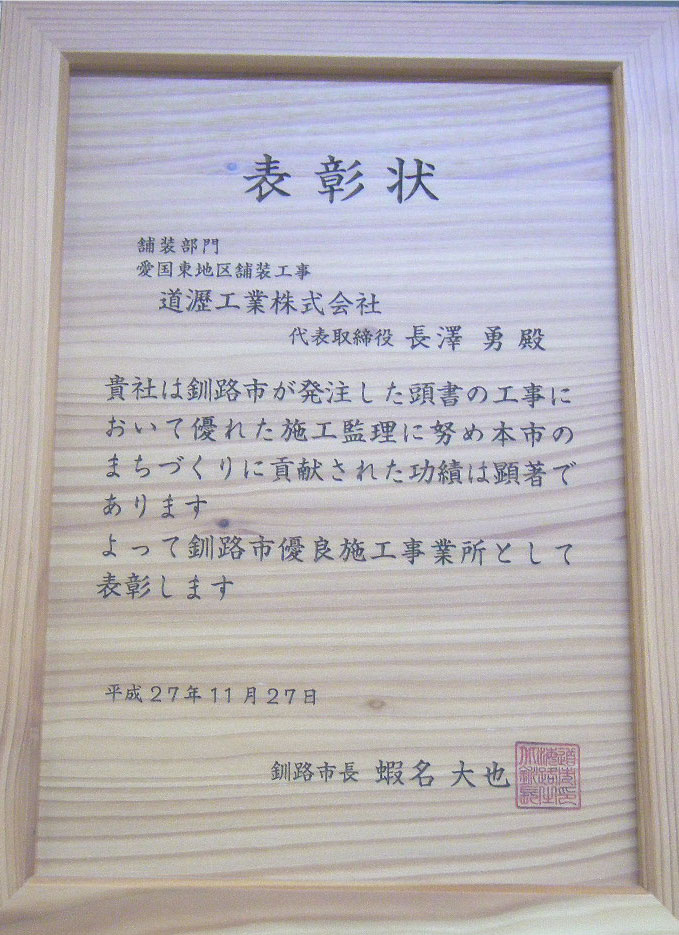 表彰状
舗装部門
愛国東地区舗装工事
道瀝工業株式会社
代表取締役 長澤 勇 殿
貴社は釧路市が発注した頭書の工事に
おいて優れた施工監理に努め本市の
まちづくりに貢献された功績は顕著で
あります
よって釧路市優良施工事業所として
表彰します
平成27年11月27日
釧路市長 蝦名 大也